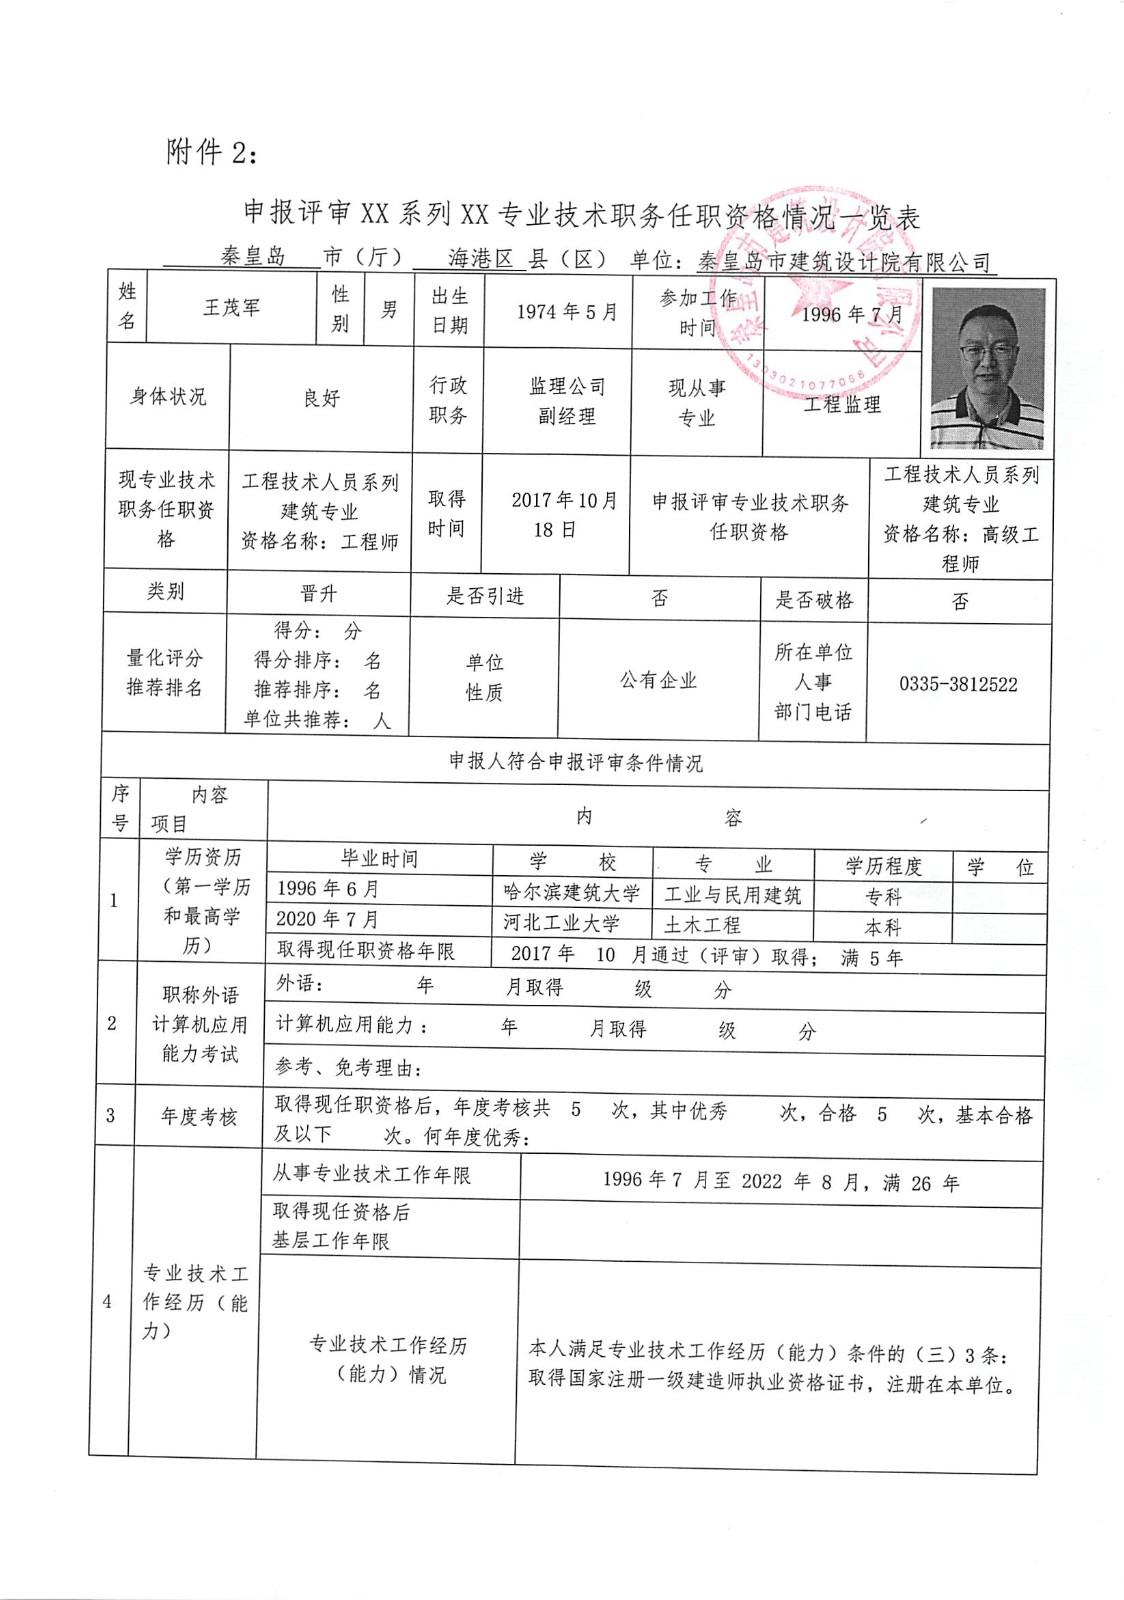 附件 2：
申报评审 XX 系列 XX 专业技术职务任职资格情况一览表
秦皇岛 市（厅） 海港区 县（区） 单位：秦皇岛市建筑设计院有限公司
姓名 王茂军 性别 男 出生日期 1974 年 5 月 参加工作时间 1996 年 7 月
身体状况 良好 行政职务 监理公司副经理 现从事专业 工程监理
现专业技术职务任职资格 工程技术人员系列建筑专业资格名称：工程师 取得时间 2017 年 10 月 18 日 申报评审专业技术职务任职资格 工程技术人员系列建筑专业资格名称：高级工程师
类别 晋升 是否引进 否 是否破格 否
量化评分推荐排名
得分： 分
得分排序： 名
推荐排序： 名
单位共推荐： 人
单位性质 公有企业 所在单位人事部门电话 0335-3812522
申报人符合申报评审条件情况
序号 内容 项目 内 容
1 学历资历（第一学历和最高学历）
毕业时间 学 校 专 业 学历程度 学 位
1996 年 6 月 哈尔滨建筑大学 工业与民用建筑 专科
2020 年 7 月 河北工业大学 土木工程 本科
取得现任职资格年限 2017 年 10 月通过（评审）取得； 满 5 年
2 职称外语计算机应用能力考试
外语： 年 月取得 级 分
计算机应用能力： 年 月取得 级 分
参考、免考理由：
3 年度考核
取得现任职资格后，年度考核共 5 次，其中优秀 次，合格 5 次，基本合格
及以下 次。何年度优秀：
4 专业技术工作经历（能力）
从事专业技术工作年限 1996 年 7 月至 2022 年 8 月，满 26 年
取得现任资格后
基层工作年限
专业技术工作经历
（能力）情况
本人满足专业技术工作经历（能力）条件的（三）3 条：
取得国家注册一级建造师执业资格证书，注册在本单位。
秦皇岛市建筑设计院有限公司
1303021077068